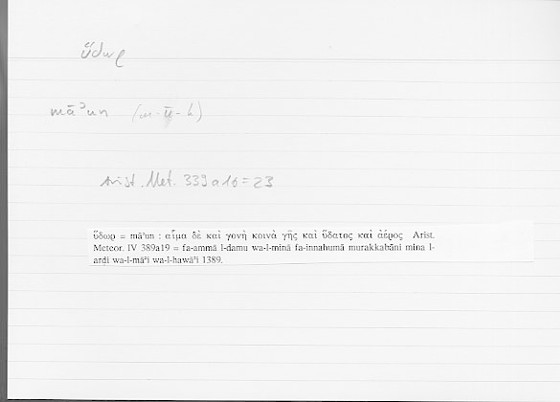 ὕδωρ
māʾun (m-w-h)
Arist. Met. 339a16 = 23
ὕδωρ = māʾun : αἷμα δὲ καὶ γονὴ κοινὰ γῆς καὶ ὕδατος καὶ ἀέρος Arist.
Meteor. IV 389a19 = fa-ammā l-damu wa-l-minā fa-innahumā murakkabāni mina l-
arḍi wa-l-māʾi wa-l-hawāʾi 1389.